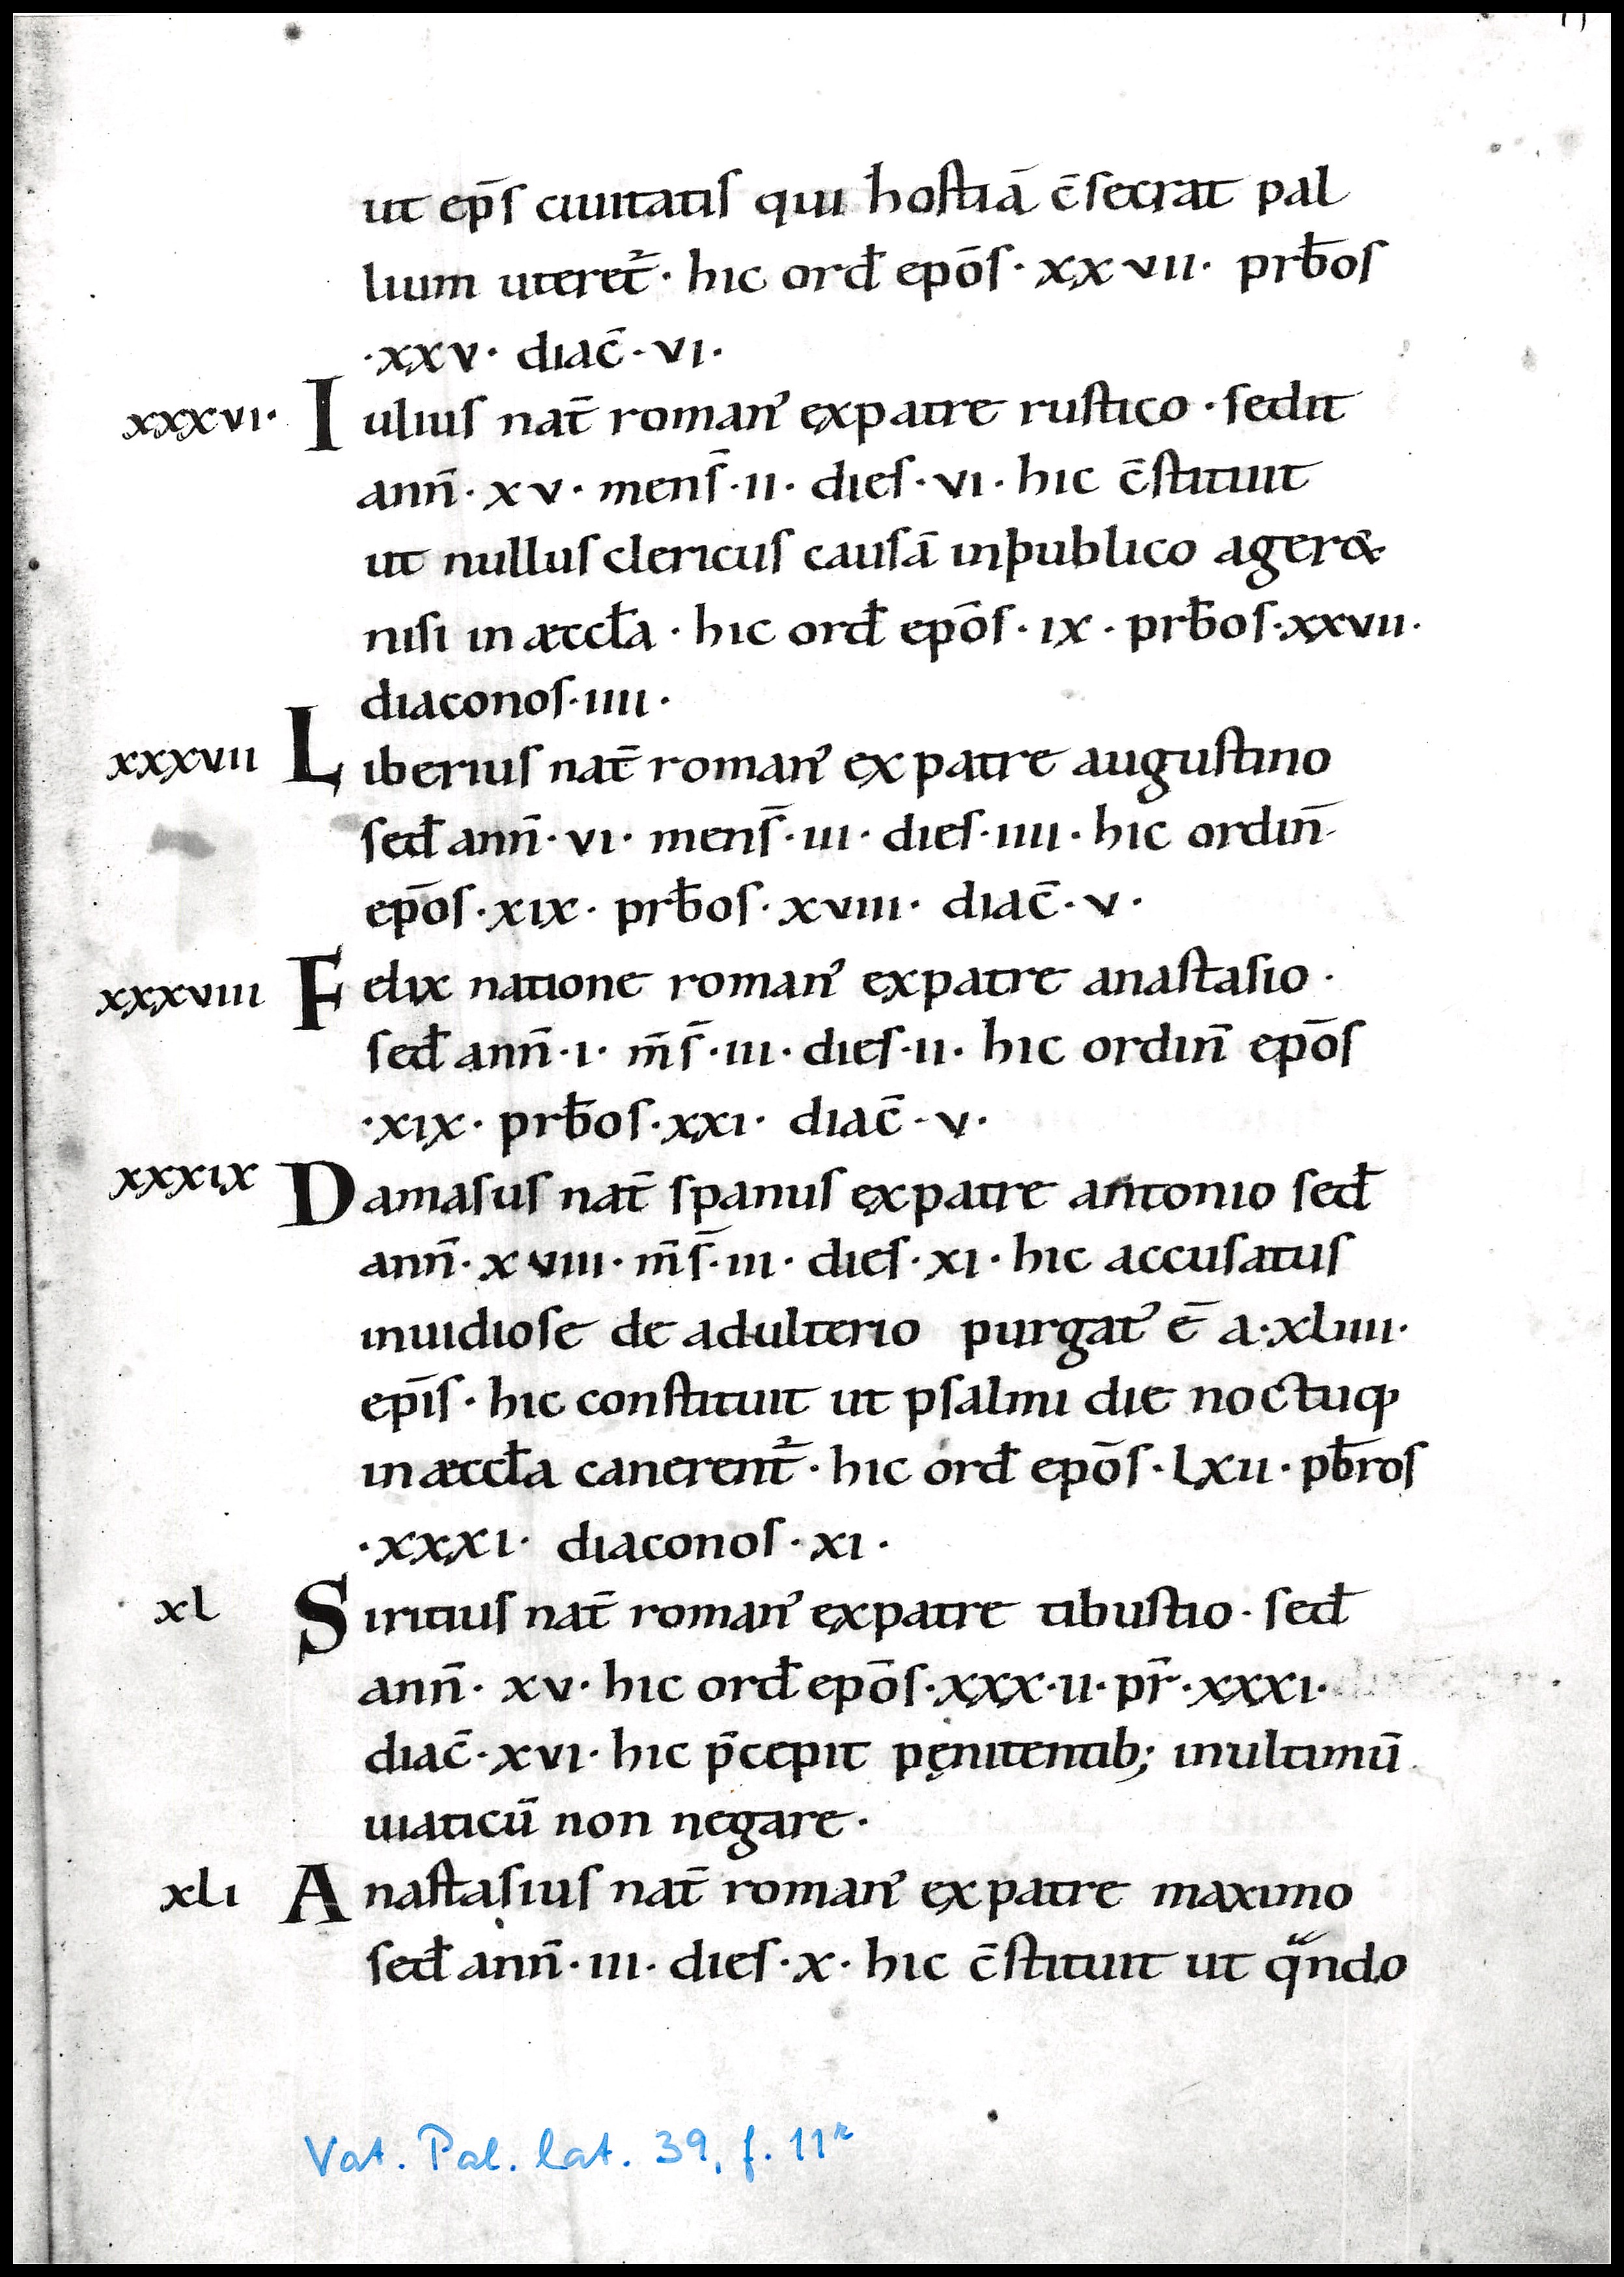 ut ep̄s ciuitatis qui hostiā c̄secrat pal
lium uteret᷑· hic ord̄ epōs· xxvii· prb̄os
·xxv· diac̄· vi·
xxxvi· Iulius nat̄ roman᾽ expatre rustico· sedit
ann̄· xv· mens̄· ii· dies· vi· hic c̄stituit
ut nullus clericus causā inpublico ager&
nisi in æccl̄a· hic ord̄ epōs· ix· prb̄os· xxvii·
diaconos· iiii·
xxxvii Liberius nat̄ roman᾽ ex patre augustino
sed̄ ann̄· vi· mens̄· iii· dies· iiii· hic ordin̄
epōs· xix· prb̄os· xviii· diac̄· v·
xxxviii Felix natione roman᾽ expatre anastasio·
sed̄ ann̄· i· m̄s̄· iii· dies· ii· hic ordin̄ epōs
·xix· prb̄os· xxi· diac̄· v·
xxxix Damasus nat̄ spanus expatre antonio sed̄
ann̄· xviii· m̄s̄· iii· dies· xi· hic accusatus
inuidiose de adulterio purgat᾽ ē a· xliiii·
ep̄is· hic constituit ut psalmi die noctuq;
in æccl̄a canerent᷑· hic ord̄ epōs· lxii· pb̄ros
·xxxi· diaconos· xi·
xl Siritius nat̄ roman᾽ expatre tibustio· sed̄
ann̄· xv· hic ord̄ epōs· xxx·ii· pr̄· xxxi·
diac̄· xvi· hic p̄cepit pęnitentib; inultimū
uiaticū non negare·
xli Anastasius nat̄ roman᾽ expatre maximo
sed̄ ann̄· iii· dies· x· hic c̄stituit ut qͣndo
Vat. Pal. lat. 39, f. 11r